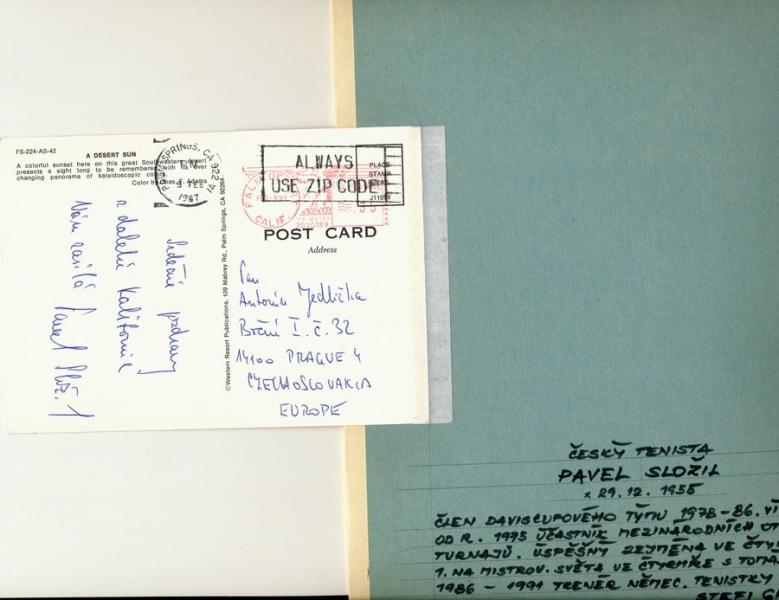 FS-224-AS-42
A DESERT SUN
A colorful sunset here on this great Southwestern desert
presents a sight long to be remembered with its ever
changing panorama of kaleidoscopic color.
Color by Chas. E. Adams
PALM SPRINGS, CA 922
PM
5 FEB
1987
ALWAYS
USE ZIP CODE
PLACE
STAMP
HERE
CALIF.
POST CARD
Address
©Western Resort Publications, 109 Mabrey Rd., Palm Springs, CA 92264
Srdečné pozdravy
z daleké Kalifornie
Vám zasílá Pavel Slož.
Pan
Antonín Jedlička
Brčni I. č. 32
14100 PRAGUE 4
CZECHOSLOVAKIA
EUROPE
ČESKÝ TENISTA
PAVEL SLOŽIL
* 29. 12. 1955
ČLEN DAVISCUPOVÉHO TÝMU 1978-86. VÍ
OD R. 1975 ÚČASTNÍK MEZINÁRODNÍCH OT
TURNAJŮ. ÚSPĚŠNÝ ZEJMÉNA VE ČTY
1. NA MISTROV. SVĚTA VE ČTYRHŘE S TOMA
1986 - 1991 TRENÉR NĚMEC. TENISTKY
STEFI G